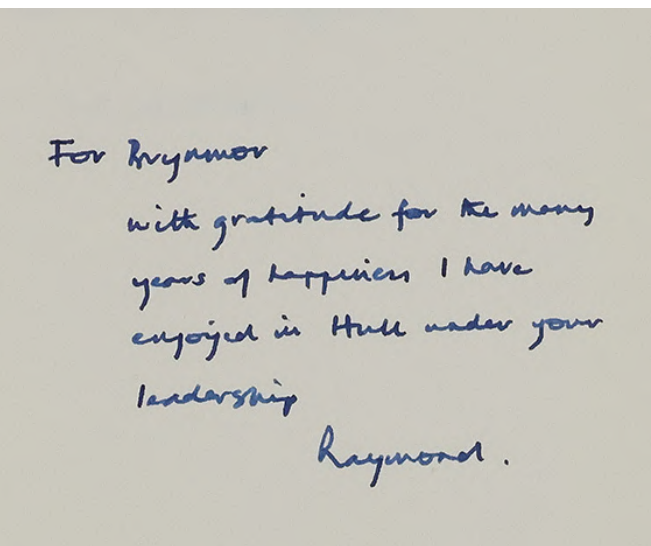 For Brynmor
with gratitude for the many
years of happiness I have
enjoyed in Hull under your
leadership
Raymond.